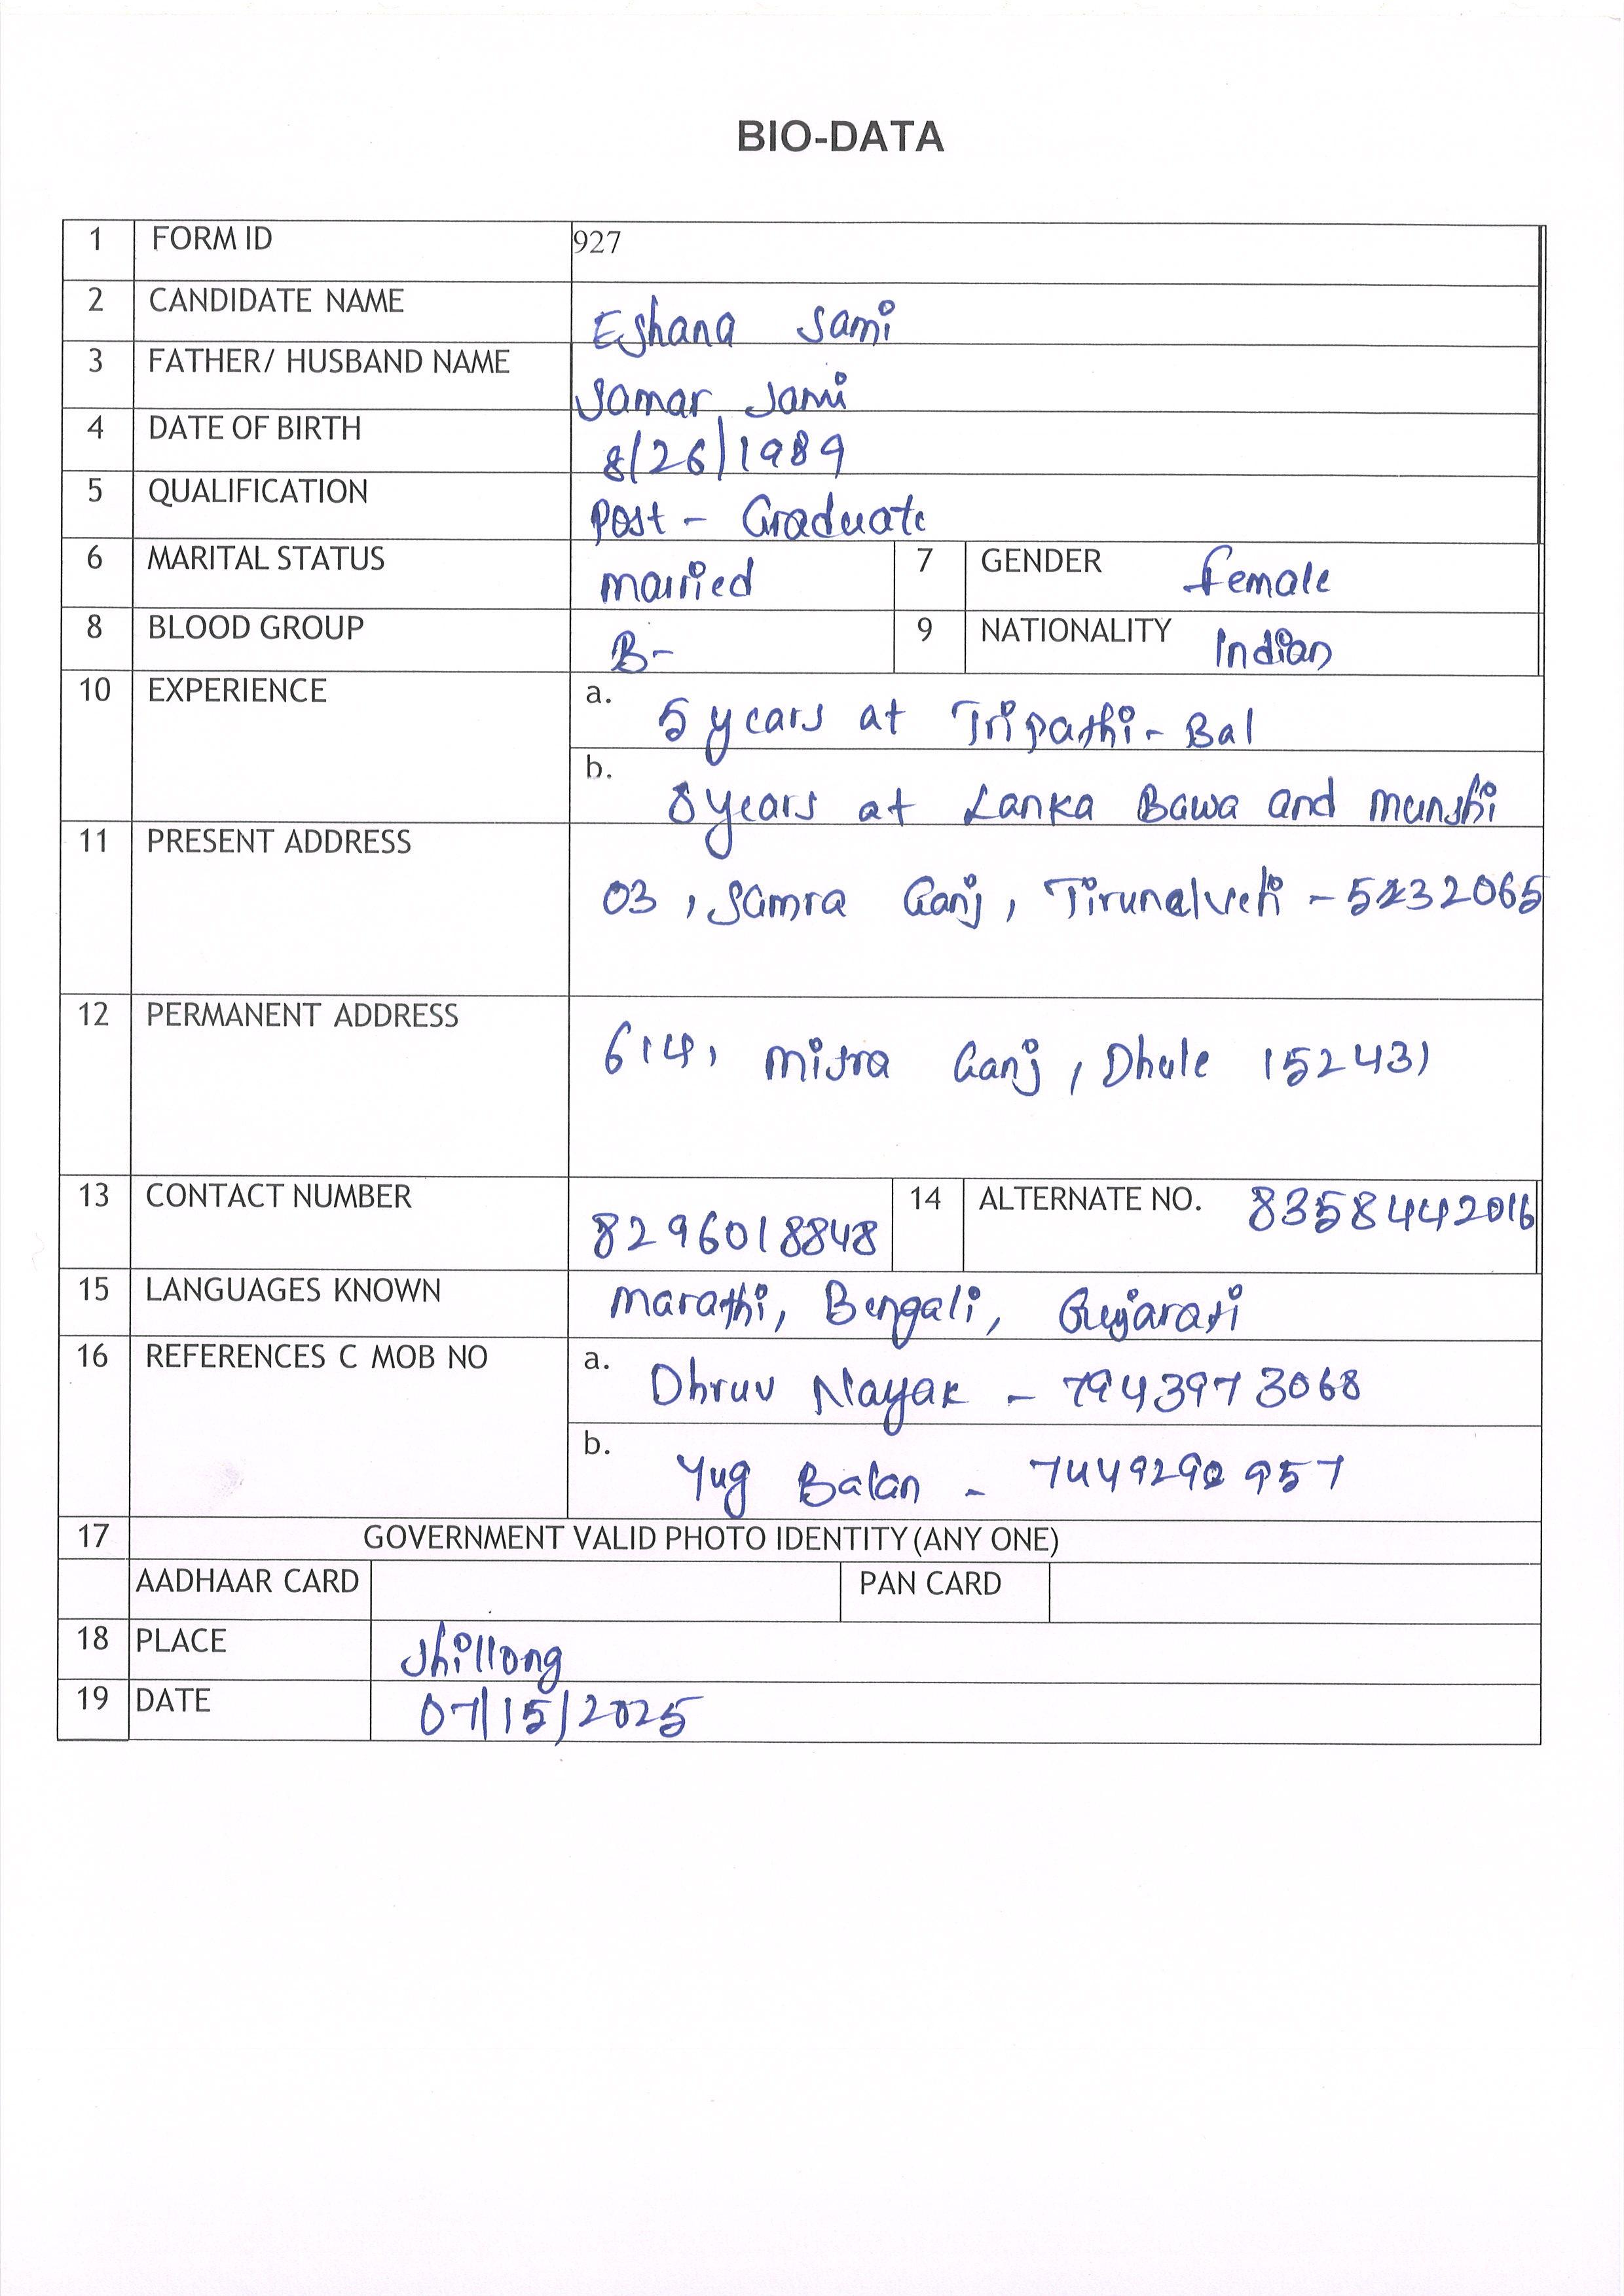 BIO-DATA
1 FORM ID 927
2 CANDIDATE NAME Eshana Sami
3 FATHER/ HUSBAND NAME Samar Sami
4 DATE OF BIRTH 8/26/1989
5 QUALIFICATION Post - Graduate
6 MARITAL STATUS Married 7 GENDER Female
8 BLOOD GROUP B- 9 NATIONALITY Indian
10 EXPERIENCE a. 5 years at Tripathi - Bal
b. 8 years at Lanka Bawa and Munshi
11 PRESENT ADDRESS
03, Samra Ganj, Tirunelveli -
12 PERMANENT ADDRESS
614, Misra Ganj, Dhule 152431
13 CONTACT NUMBER 8296018848 14 ALTERNATE NO. 8358442016
15 LANGUAGES KNOWN Marathi, Bengali, Gujarati
16 REFERENCES C MOB NO a. Dhruv Nayak - 7943973068
b. Yug Balan - 7449290957
17 GOVERNMENT VALID PHOTO IDENTITY (ANY ONE)
AADHAAR CARD PAN CARD
18 PLACE Shillong
19 DATE 07/15/2025